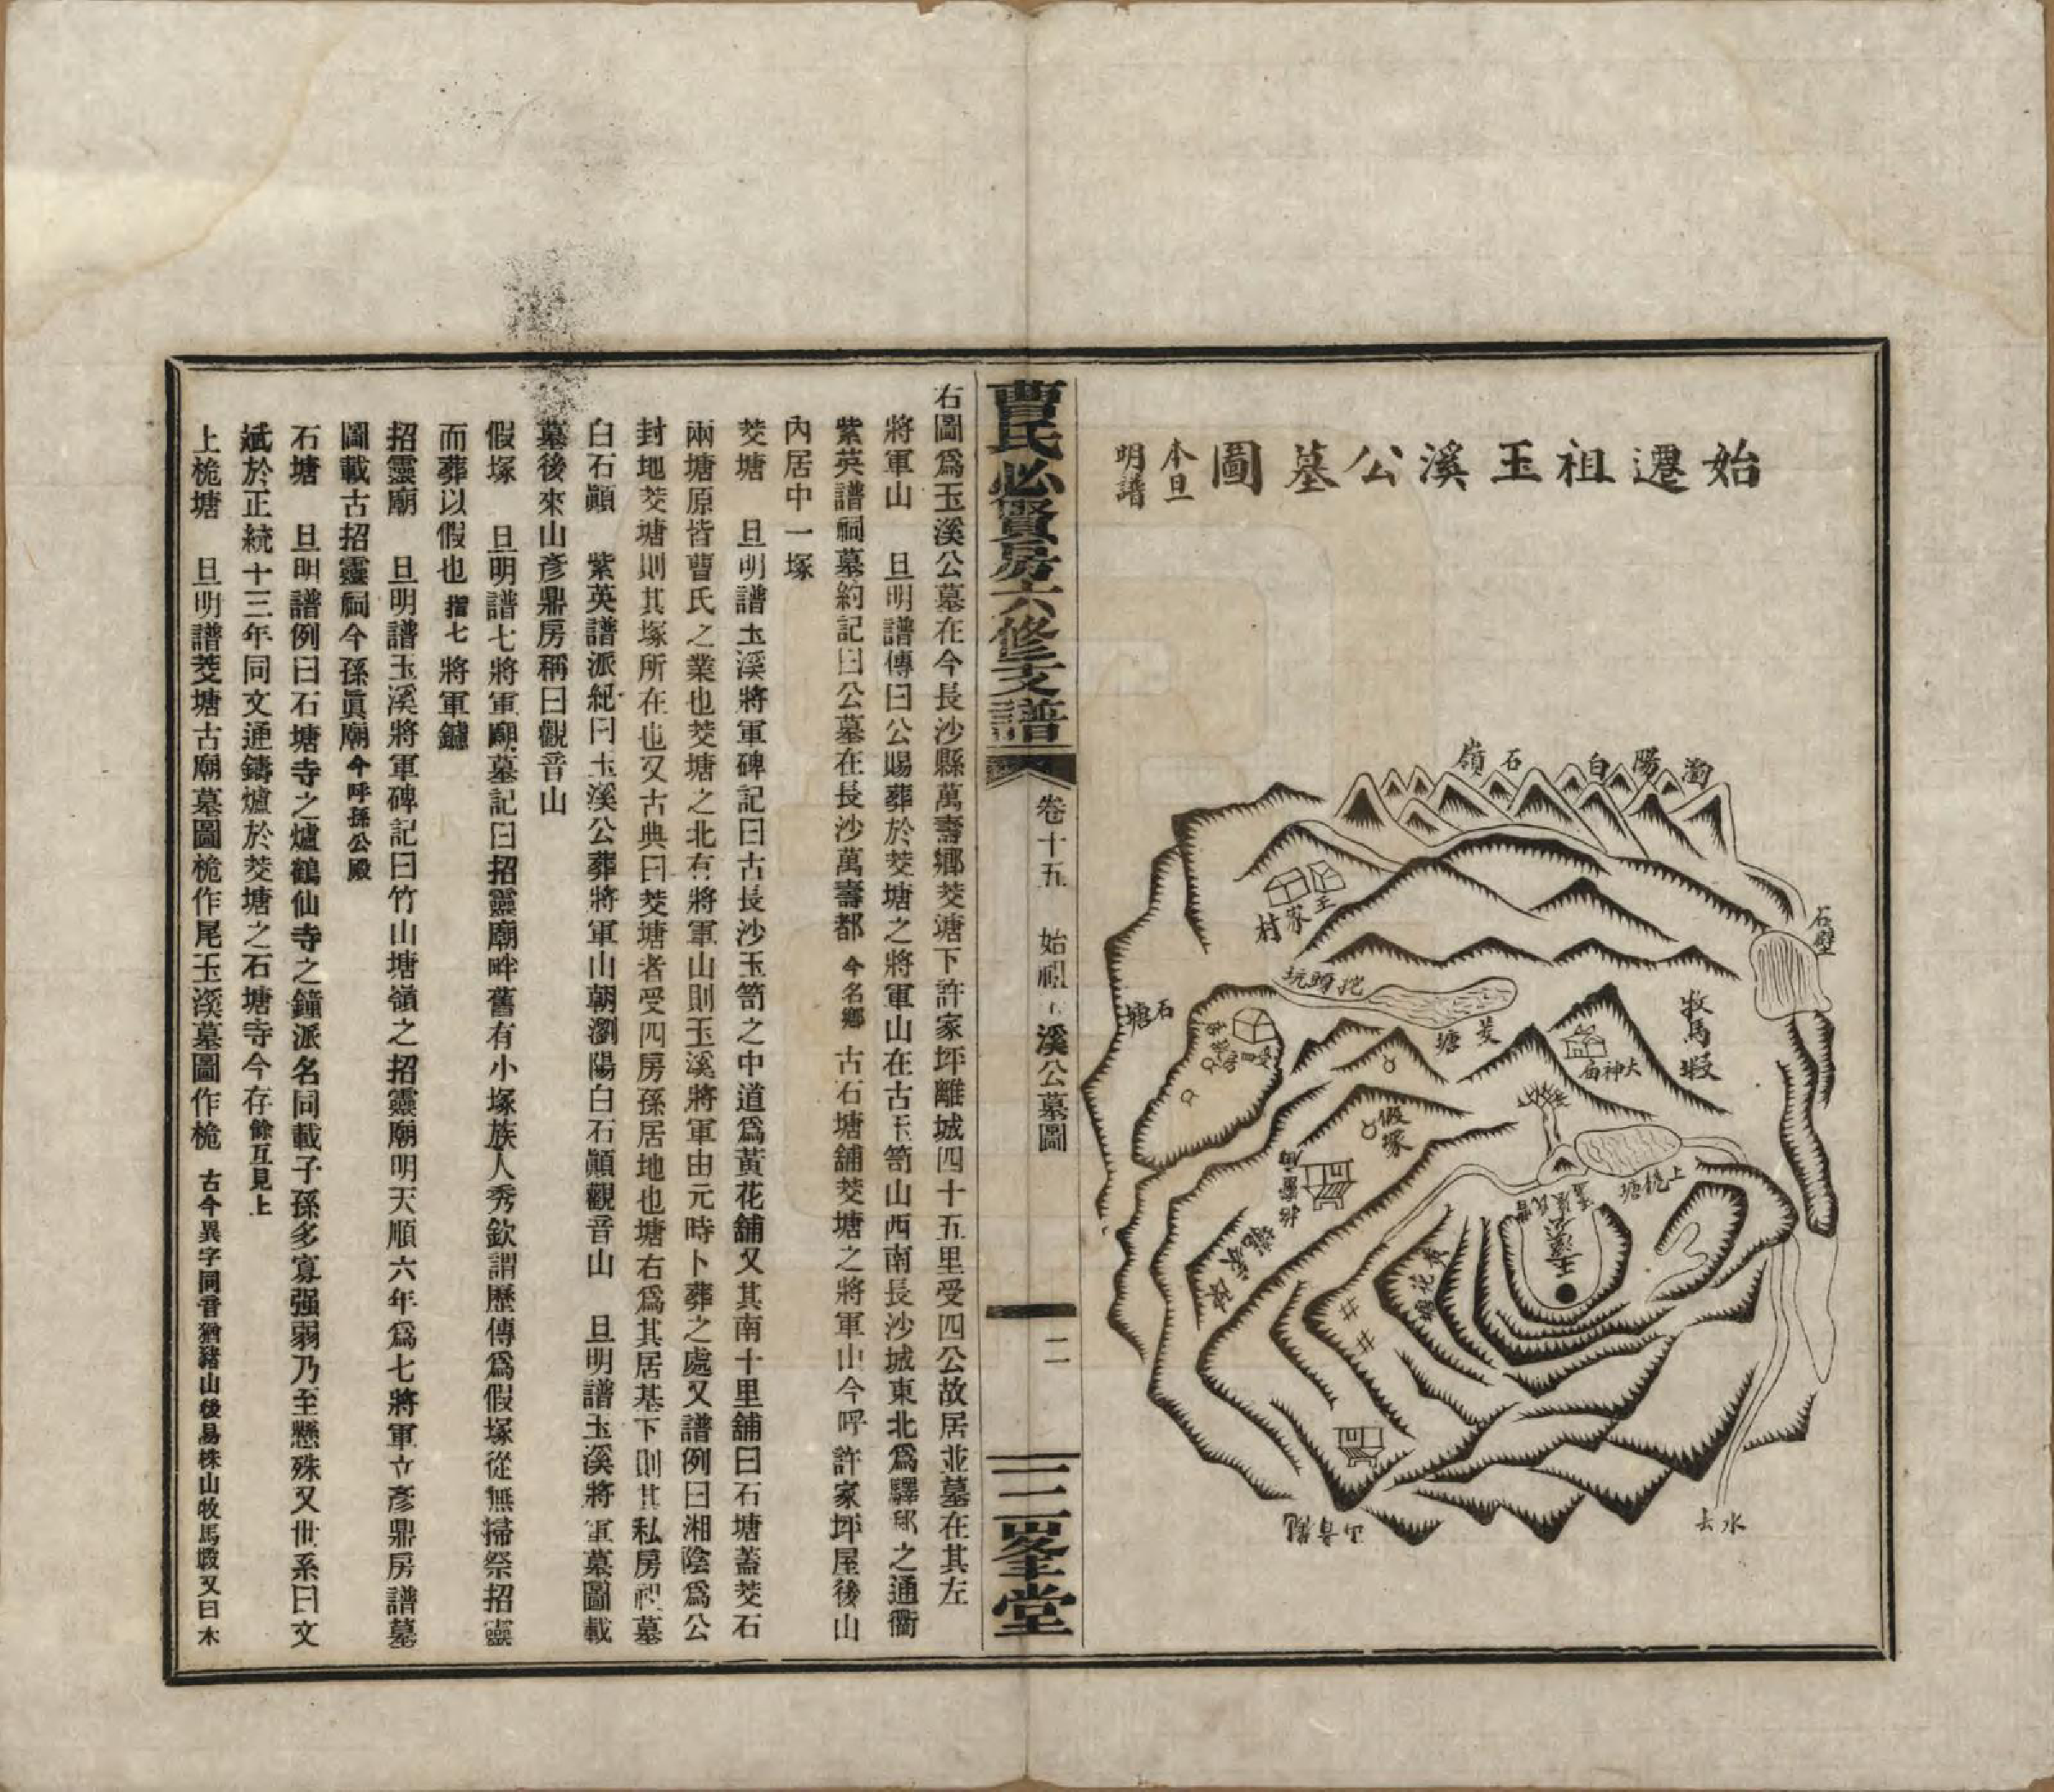 始遷祖玉溪公墓圖
本旦
明譜
瀏陽白石嶺
石壁
王家村
挖腳坑
茭塘
石塘
牧馬塅
大神庙
假塚
上桅塘
玉溪公
黃花塘
觀音山
水去
曹氏必賢房六修支譜
卷十五
始祖玉溪公墓圖
二
三峯堂
右圖爲玉溪公墓在今長沙縣萬壽鄉茭塘下許家坪離城四十五里受四公故居並墓在其左
將軍山　旦明譜傳曰公賜葬於茭塘之將軍山在古玉笥山西南長沙城東北爲驛邮之通衢
紫英譜祠墓約記曰公墓在長沙萬壽都今名鄉古石塘舖茭塘之將軍山今呼許家坪屋後山
內居中一塚
茭塘　旦明譜玉溪將軍碑記曰古長沙玉笥之中道爲黃花舖又其南十里舖曰石塘蓋茭石
兩塘原皆曹氏之業也茭塘之北有將軍山則玉溪將軍由元時卜葬之處又譜例曰湘陰爲公
封地茭塘則其塚所在也又古典曰茭塘者受四房孫居地也塘右爲其居基下則其私房祖墓
白石巔　紫英譜派紀曰玉溪公葬將軍山朝瀏陽白石巔觀音山　旦明譜玉溪將軍墓圖載
墓後來山彥鼎房稱曰觀音山
假塚　旦明譜七將軍廟墓記曰招靈廟畔舊有小塚族人秀欽謂歷傳爲假塚從無掃祭招靈
而葬以假也指七將軍鑪
招靈廟　旦明譜玉溪將軍碑記曰竹山塘嶺之招靈廟明天順六年爲七將軍立彥鼎房譜墓
圖載古招靈祠今孫眞廟今呼孫公殿
石塘　旦明譜例曰石塘寺之爐鶴仙寺之鐘派名同載子孫多寡强弱乃至懸殊又世系曰文
斌於正統十三年同文通鑄爐於茭塘之石塘寺今存餘互見上
上桅塘　旦明譜茭塘古廟墓圖桅作尾玉溪墓圖作桅古今異字同音猶豬山後易株山牧馬塅又曰木